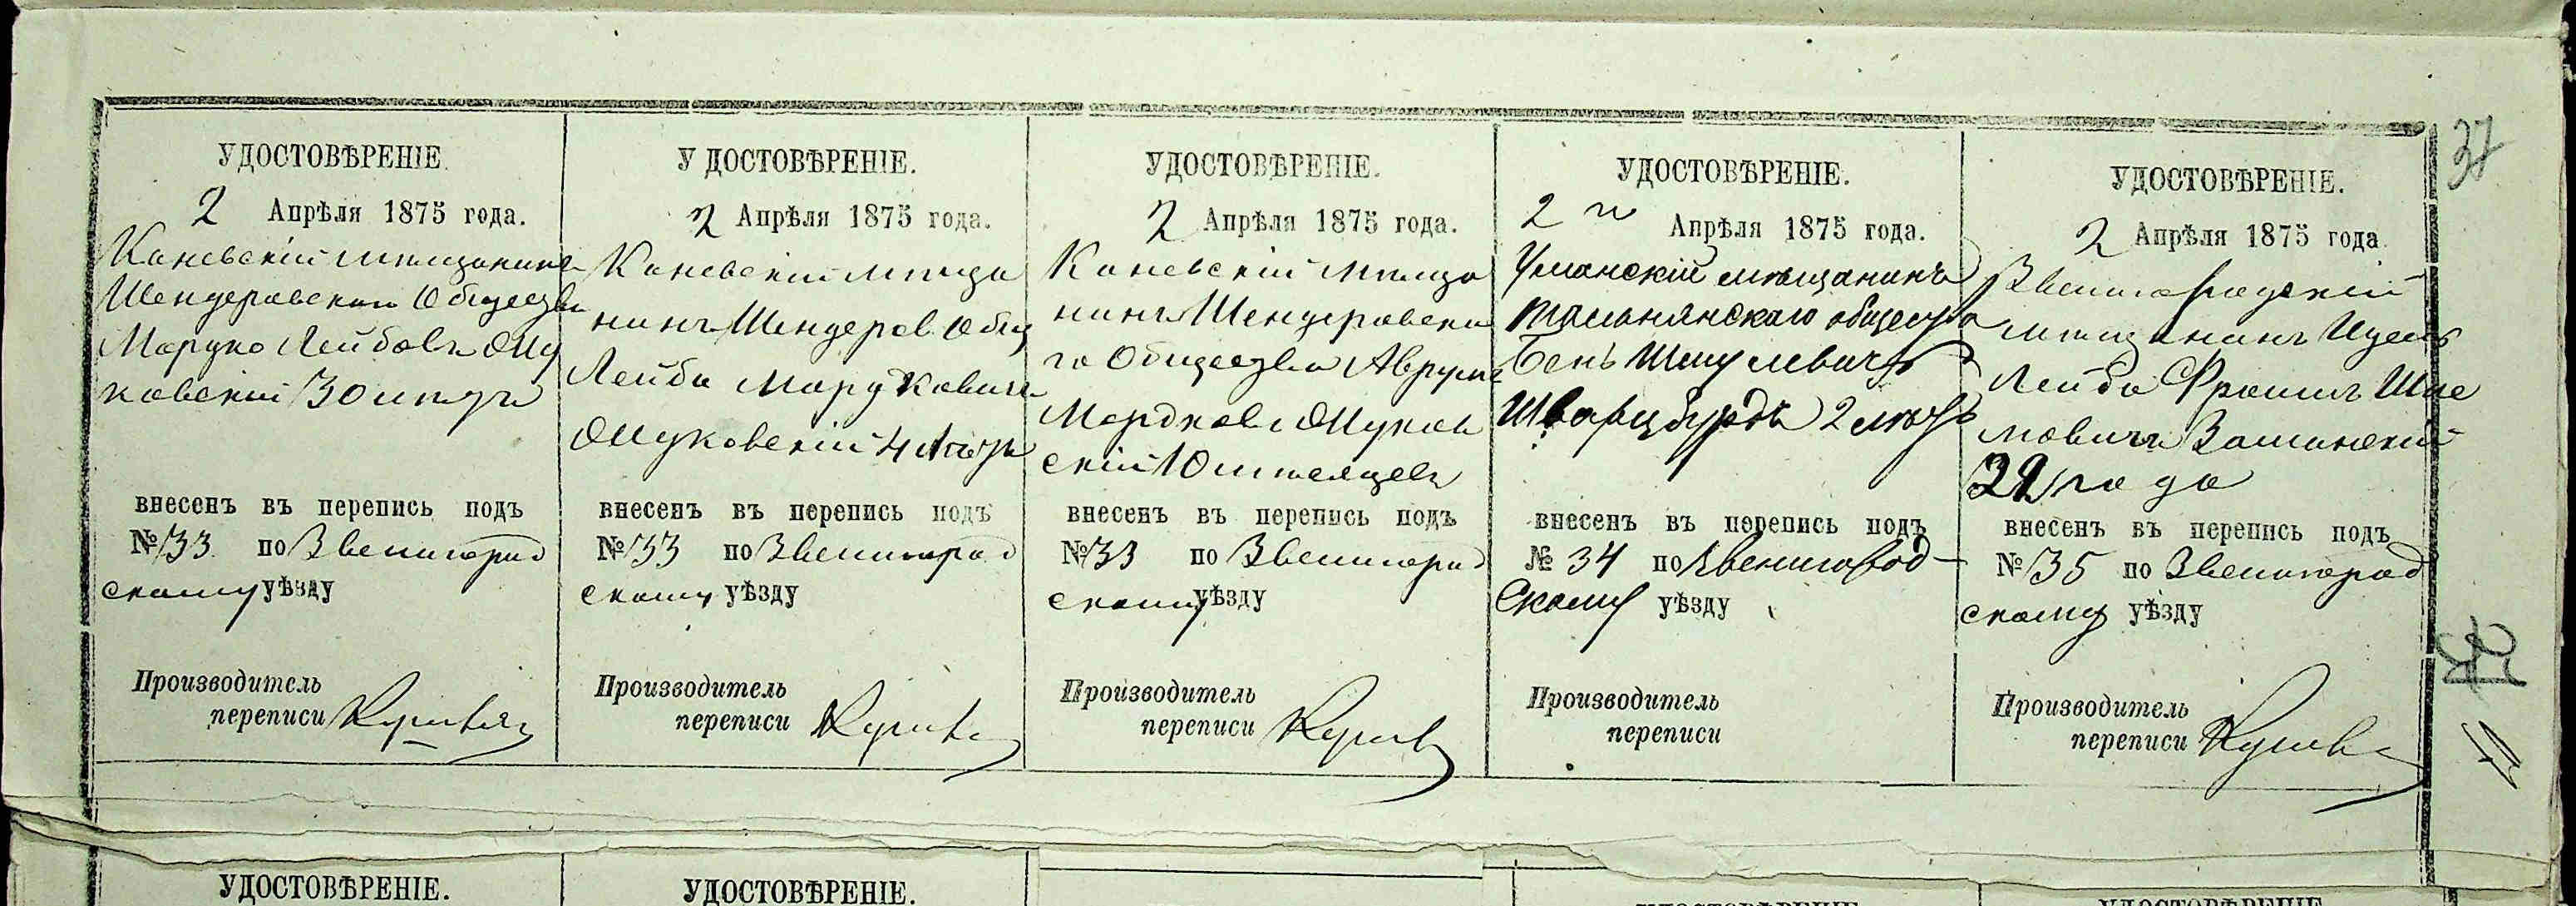 37
УДОСТОВѢРЕНІЕ.
2 Апрѣля 1875 года.
Каневскій мѣщанинъ
Шендеровскаго Общества
Мардко Лейбовъ
ковскій 30 лѣтъ
внесенъ въ перепись подъ
№ 33 по Звенигород
скому уѣзду
Производитель
переписи
УДОСТОВѢРЕНІЕ.
2 Апрѣля 1875 года.
Каневскій мѣща
нинъ Шендеров. Общ
Лейба Мардковичъ
4 лѣтъ
внесенъ въ перепись подъ
№ 33 по Звенигород
скому уѣзду
Производитель
переписи
УДОСТОВѢРЕНІЕ.
2 Апрѣля 1875 года.
Каневскій мѣща
нинъ Шендеровска
го Общества Аврумъ
Мардков
скій 10 мѣсяцевъ
внесенъ въ перепись подъ
№ 33 по Звенигород
скому уѣзду
Производитель
переписи
УДОСТОВѢРЕНІЕ.
2 го Апрѣля 1875 года.
Уманскій мѣщанинъ
Тальнянскаго общества
Бень Шмулевичъ
Шварцбурдъ 2 лѣтъ
внесенъ въ перепись подъ
№ 34 по Звенигород-
скому уѣзду
Производитель
переписи
УДОСТОВѢРЕНІЕ.
2 Апрѣля 1875 года.
Звенигородскій
мѣщанинъ Идель
Лейба Фроимъ Шле
мовичъ
года
внесенъ въ перепись подъ
№ 35 по Звенигород
скому уѣзду
Производитель
переписи
УДОСТОВѢРЕНІЕ.
УДОСТОВѢРЕНІЕ.